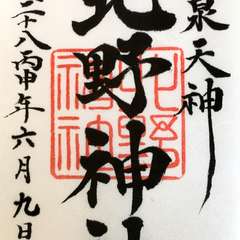 泉天神
北野神社
二十八丙申年六月九日